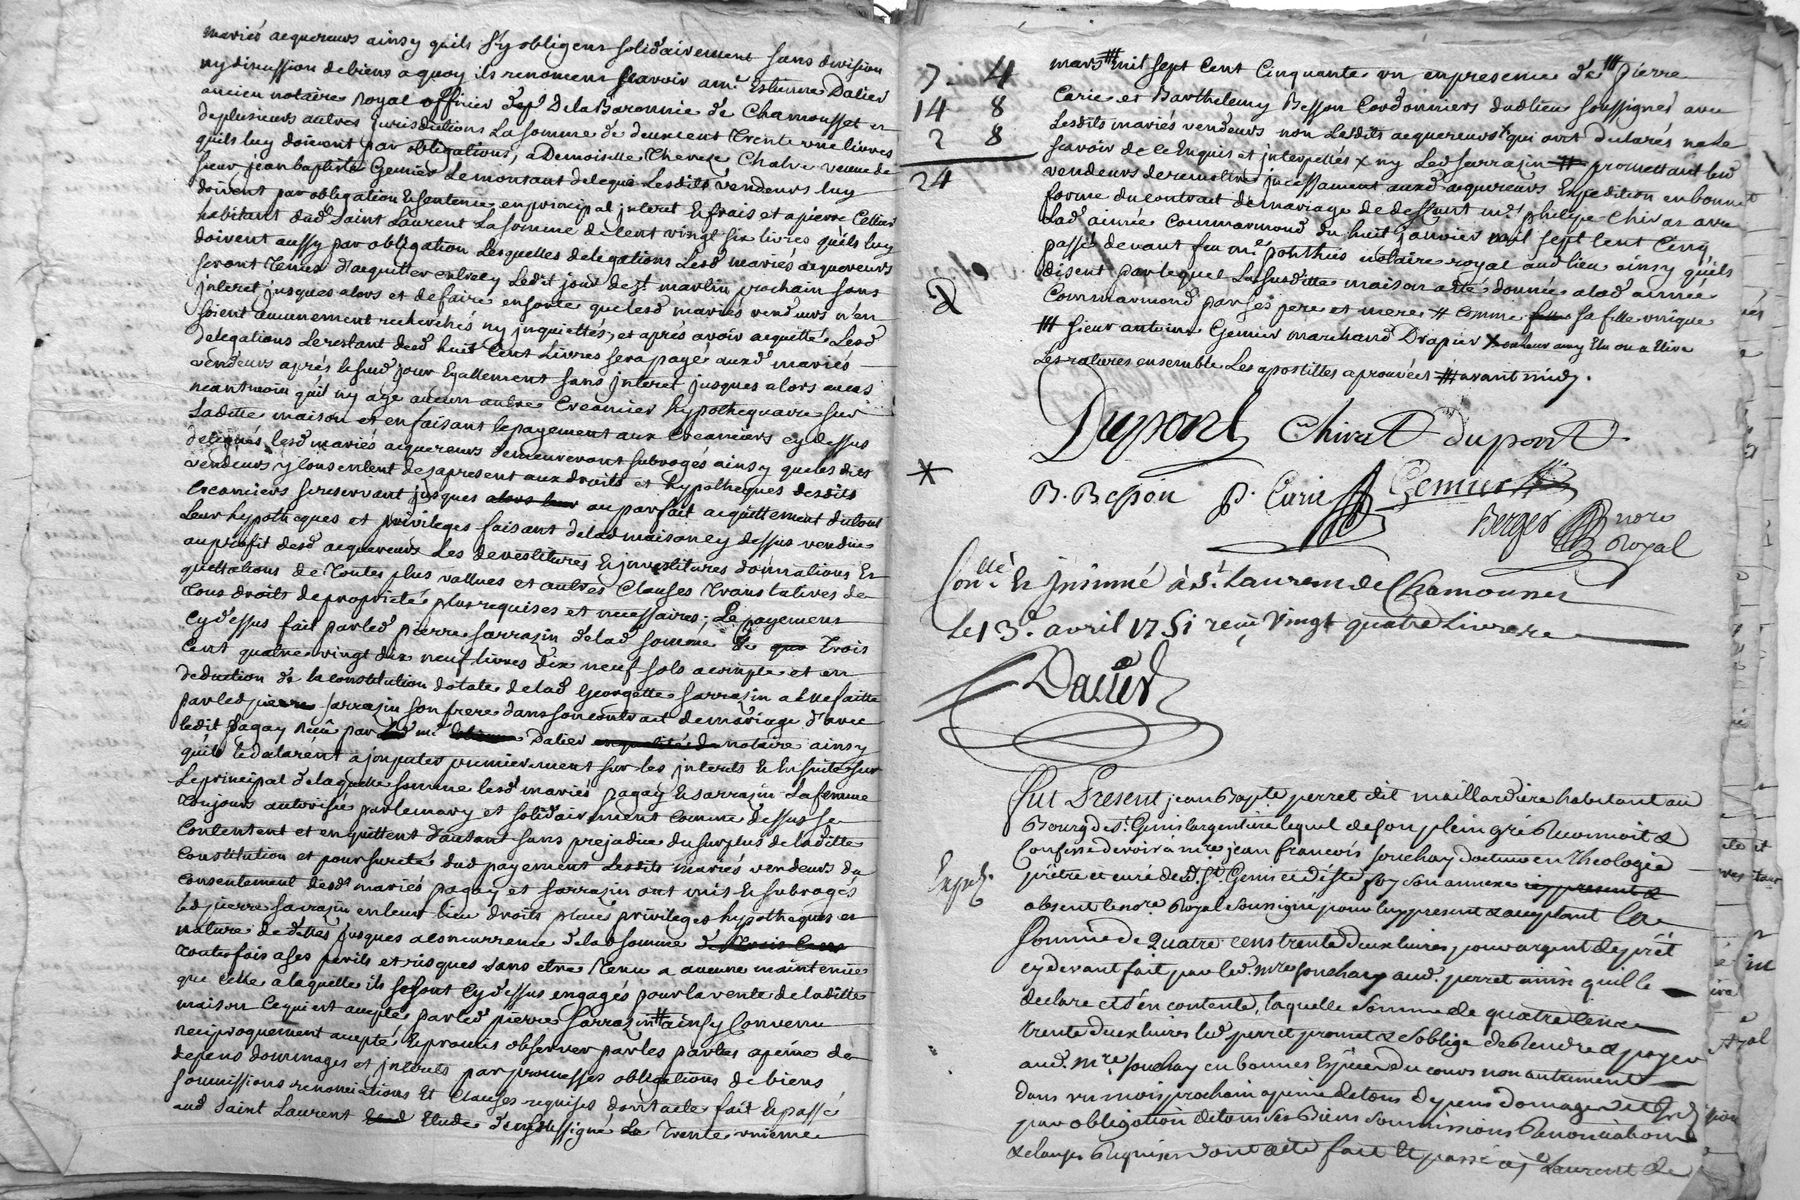 mariés acquereurs ainsy quils s'y obligent solidairement sans division
ny discussion de biens a quoy ils renoncent scavoir a mr. Estienne Dalier
ancien notaire Royal officier de la Baronnie de Chamousset et
de plusieurs autres jurisdictions La somme de deux cent trente une livres
quils luy doivent par obligations, a Demoiselle Thereze Chalve veuve de
sieur jean baptiste Gemier Le montant de lesdits vendeurs luy
doivent par obligation & sentence en principal jnteret & frais et a pierre
habitant dud Saint Laurent La somme de cent vingt six livres qu'ils luy
doivent aussy par obligation Lesquelles delegations Lesd mariés acquereurs
seront tenus d'acquitter Ledit jour de st martin prochain sans
jnteret jusques alors et de faire ensorte que lesd mariés vendeurs n'en
soient aucunement recherchés ny jnquiettés, et aprés avoir acquitté Lesd
delegations Le restant desd huit Cent Livres sera payé auxd mariés
vendeurs aprés le susd jour Egallement sans jnteret jusques alors
neantmoins quil ny aye aucun autre Creancier hypothequaire sur
Ladite maison et en faisant le payement aux Creanciers cy dessus
delegués lesd mariés acquereurs demeureront subrogés ainsy que les dits
vendeurs y consentent des apresent aux droits et hypotheques desdits
Creanciers se reservant jusques alors leur au parfait acquittement du tout
Leur hypotheques et privileges faisant de lad maison cy dessus vendue
au profit desd acquereurs Les devestitures & jnvestitures donnations &
quittations de toutes plus vallues et autres Clauses translatives de
tous droits de proprieté plus requises et necessaires; Le payement
cy dessus fait par led pierre sarrazin de lad somme de trois
Cent quatre vingt dix neuf livres dix neuf sols a compte et en
deduction de la constitution dotale de lad Georgette sarrazin a elle faitte
par led pierre sarrazin son frere dans son contrat de mariage d'avec
ledit pagay recû par me Dalier notaire ainsy
qu'ils le declarent a jmputer premierement sur les jnterets & Ensuite sur
Le principal de laquelle somme lesd mariés pagay & sarrazin La femme
toujours autorisée par le mary et solidairement comme dessus se
Contentent et en quittent d'autant sans prejudice du surplus de laditte
Constitution et pour sureté dud payement Lesdits mariés vendeurs du
consentement desds mariés pagay et sarrazin ont mis & subrogés
led pierre sarrazin en leur lieu droits place privileges hypotheques et
nature de dettes jusques a concurrence de lad somme de trois Cent
toutes fois a ses perils et risques sans etre tenu a aucune maintenue
que celle a laquelle ils se sont Cy dessus engagés pour la vente de laditte
maison Ce qui est accepté par led pierre sarrazin # ainsy Convenu
reciproquement accepté & promis observer par les parties a peine de
depens dommages et jnterets par promesses obligations de biens
soumissions renonciations Et Clauses requises dont acte fait & passé
aud Saint Laurent Etude du soussigné Le trente unieme
7 4
14 8
2 8
24
mars # mil sept Cent Cinquante un en presence de # pierre
Carie et Barthelemy Besson Cordonniers dud lieu soussignés, avec
Lesdits mariés vendeurs non Lesdits acquereurs x qui ont declarés ne le
scavoir de ce Enquis et jnterpellés x ny Led sarrazin # promettant les
vendeurs de remettre jncessament auxd acquereurs Expedition en bonne
forme du contrat de mariage de deffunt mr. philipe Chirat avec
Lad aimée Commarmond du huit janvier mil sept Cent Cinq
passé devant feu me. ponthus notaire royal aud lieu ainsy qu'ils
disent par lequel La susditte maison a eté donnée a lad aimée
Commarmond par ses pere et mere # comme sa fille unique
# sieur antoine Gemier marchand Drapier x
Les ratures ensemble Les apostilles aprouvées # avant midy.
Dupont Chirat dupont
B. Besson P. Carie Gemier
Berger nore
Royal
*
Conllé & Jnsinué à St. Laurent de Chamousset
Le 13e. avril 1751 reçu Vingt quatre Livres
Dalier
Fut Present jean Bapte perret dit maillardiere habitant au
Bourg de St. Genis largentiere lequel de son plein gré Reconnoit &
Confesse devoir à mre jean francois souchay docteur en theologie
Expedé.
prêtre et curé dud. St. Genis et diste foy son annexe icy present &
absent le nore. Royal soussigné pour luy present & acceptant la
Somme de Quatre cens trente deux livres, pour argent de prêt
cy devant fait par led. mre souchay aud. perret ainsi quil le
declare et s'en contente, laquelle somme de quatre cens
trente deux livres led perret promet & s'oblige de Rendre & payer
aud. mre. souchay en bonnes Espèces du cours non autrement
dans un mois prochain a peine de tous depens domages et
par obligation de tous ses Biens soumissions Renonciations
& clauses Requises dont acte fait & passé a St Laurent de